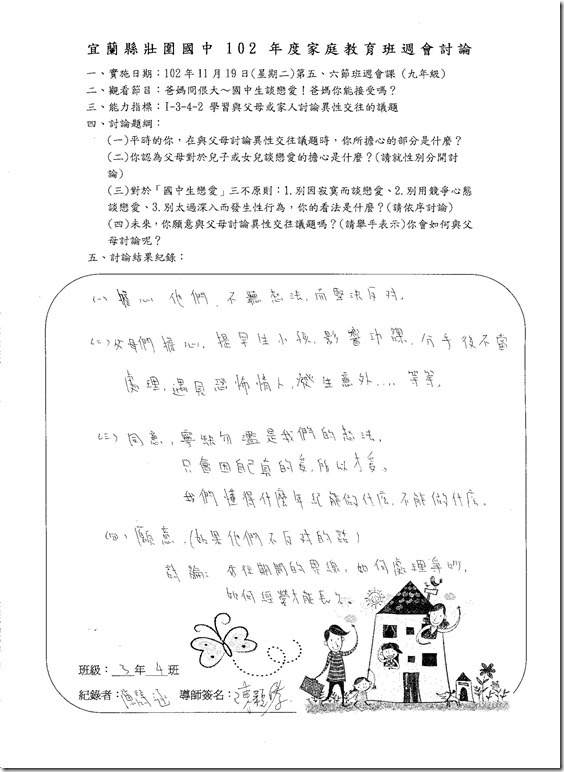 宜蘭縣壯圍國中 102 年度家庭教育班週會討論
一、實施日期：102年11月19日(星期二)第五、六節班週會課 (九年級)
二、觀看節目：爸媽冏很大～國中生談戀愛！爸媽你能接受嗎？
三、能力指標：I-3-4-2 學習與父母或家人討論異性交往的議題
四、討論題綱：
(一)平時的你，在與父母討論異性交往議題時，你所擔心的部分是什麼？
(二)你認為父母對於兒子或女兒談戀愛的擔心是什麼？(請就性別分開討
論)
(三)對於「國中生戀愛」三不原則：1.別因寂寞而談戀愛、2.別用競爭心態
談戀愛、3.別太過深入而發生性行為，你的看法是什麼？(請依序討論)
(四)未來，你願意與父母討論異性交往議題嗎？(請舉手表示)你會如何與父
母討論呢？
五、討論結果紀錄：
(一) 擔心他們，不聽想法，而堅決反对。
(二) 父母們擔心，提早生小孩，影響功課，分手後不當
處理，遇見恐怖情人，發生意外.... 等等。
(三) 同意，寧缺勿濫是我們的想法。
只會因自己真的愛，所以才愛。
我們懂得什麼年紀能做什庅，不能做什庅。
(四) 願意，(如果他們不反对的話)
討論: 交往期間的界線，如何處理爭吵，
如何經營才能長久。
班級： 3 年 4 班
紀錄者： 導師簽名：